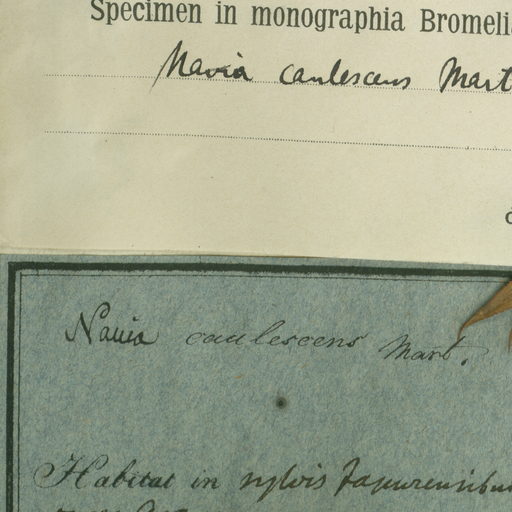 Specimen in monographia Bromeli
Navia caulescens Mart
Navia caulescens Mart.
Habitat in sylvis Japurensibu